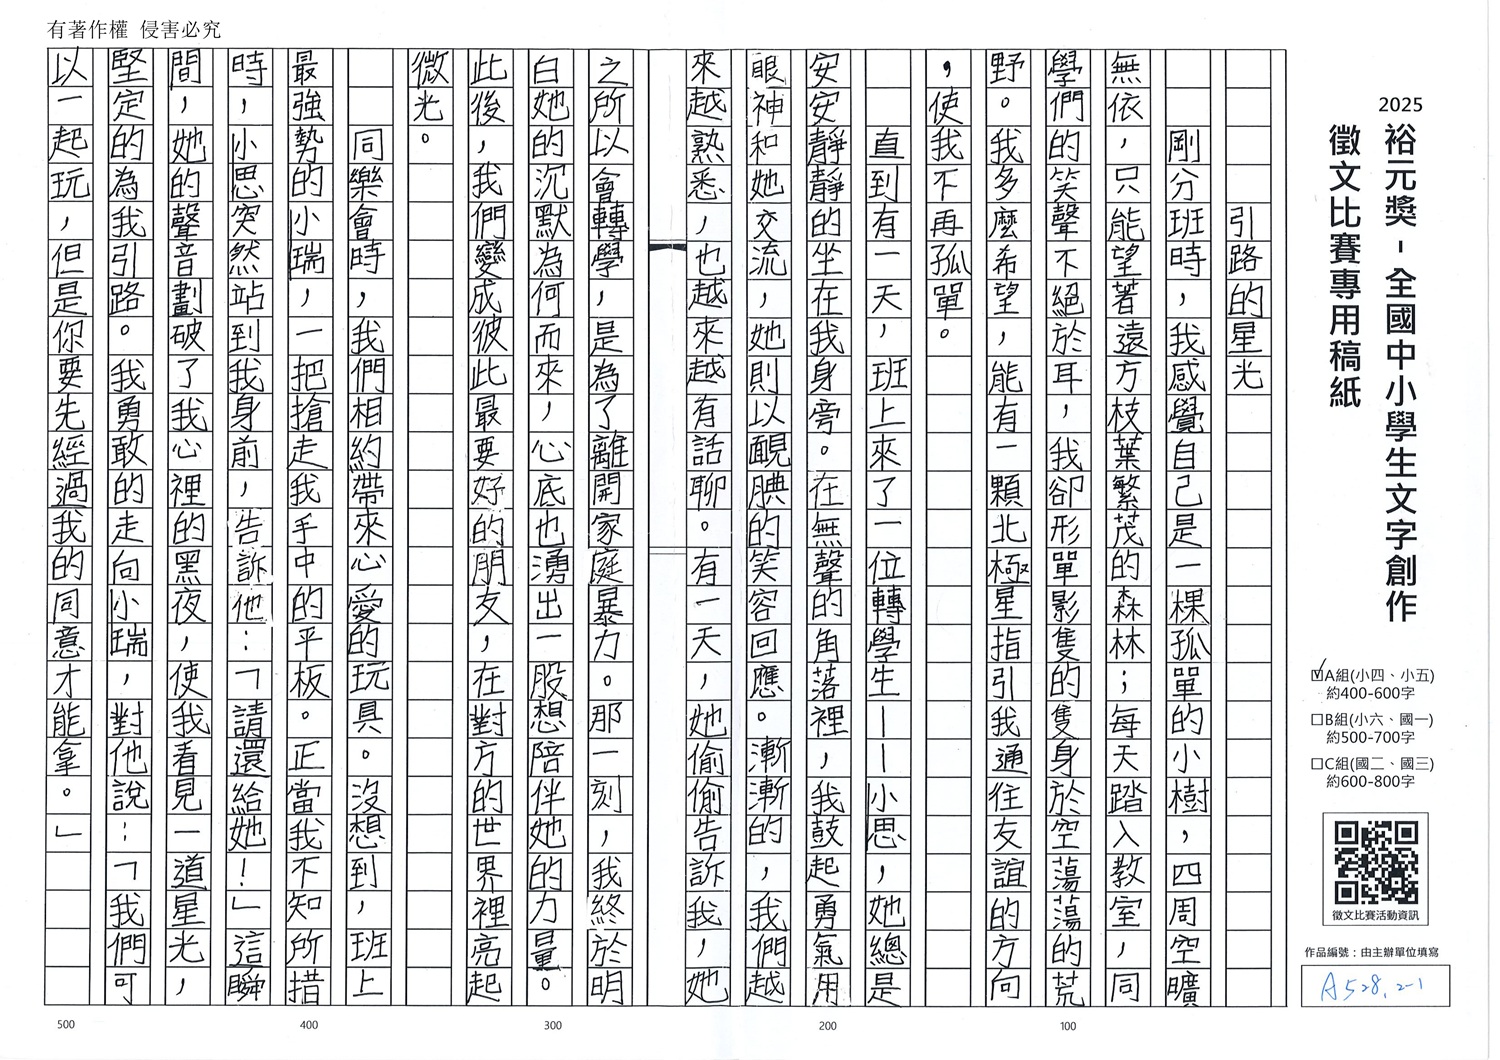 有著作權 侵害必究
2025
裕元獎-全國中小學生文字創作
徵文比賽專用稿紙
☑A組(小四、小五)
約400-600字
□B組(小六、國一)
約500-700字
□C組(國二、國三)
約600-800字
徵文比賽活動資訊
作品編號：由主辦單位填寫
A528.2-1
引路的星光
剛分班時，我感覺自己是一棵孤單的小樹，四周空曠
無依，只能望著遠方枝葉繁茂的森林；每天踏入教室，同
學們的笑聲不絕於耳，我卻形單影隻的隻身於空蕩蕩的荒
野。我多麼希望，能有一顆北極星指引我通往友誼的方向
，使我不再孤單。
直到有一天，班上來了一位轉學生——小思，她總是
安安靜靜的坐在我身旁。在無聲的角落裡，我鼓起勇氣用
眼神和她交流，她則以靦腆的笑容回應。漸漸的，我們越
來越熟悉，也越來越有話聊。有一天，她偷偷告訴我，她
之所以會轉學，是為了離開家庭暴力。那一刻，我終於明
白她的沉默為何而來，心底也湧出一股想陪伴她的力量。
此後，我們變成彼此最要好的朋友，在對方的世界裡亮起
微光。
同樂會時，我們相約帶來心愛的玩具。沒想到，班上
最強勢的小瑞，一把搶走我手中的平板。正當我不知所措
時，小思突然站到我身前，告訴他：「請還給她！」這瞬
間，她的聲音劃破了我心裡的黑夜，使我看見一道星光，
堅定的為我引路。我勇敢的走向小瑞，對他說：「我們可
以一起玩，但是你要先經過我的同意才能拿。」
100
200
300
400
500